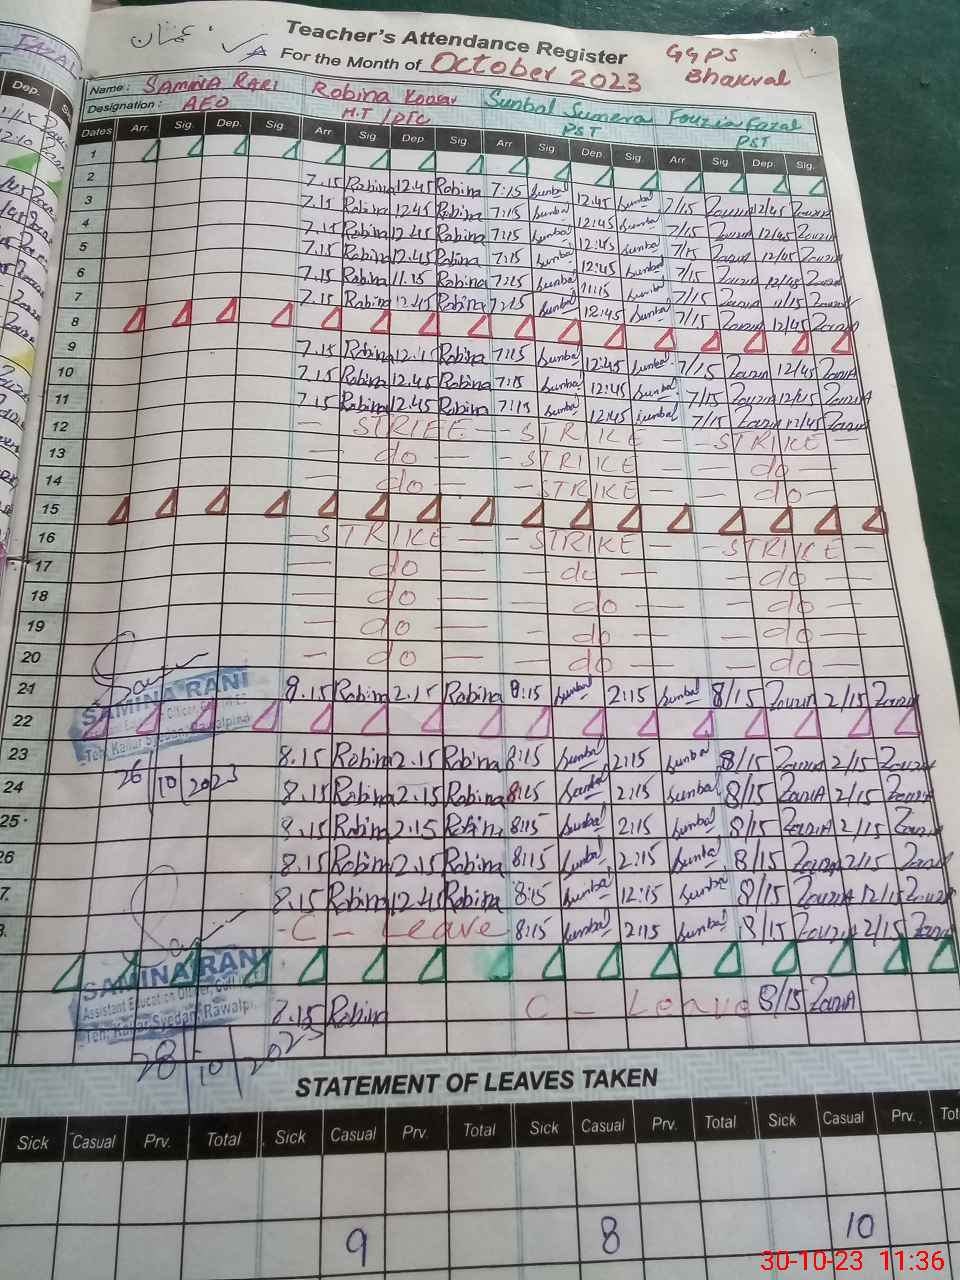 عثمان
Teacher's Attendance Register
GGPS
For the Month of October 2023
Bhakral
Name: SAMINA RARI Robina Kousar Sunbal Sumera Fouzia Fazal
Designation: AEO H.T / DTC PST PST
Dates Arr. Sig. Dep. Sig. Arr. Sig Dep Sig Arr Sig Dep. Sig. Arr Sig Dep. Sig.
1
2 7.15 Robina 12.45 Robina 7:15 Sunbal 12:45 Sunbal 7/15 Zouzia 12/45 Zouzia
3 7.15 Robina 12.45 Robina 7:15 Sunbal 12:45 Sunbal 7/15 Zouzia 12/45 Zouzia
4 7.15 Robina 12.45 Robina 7:15 Sunbal 12:45 Sunbal 7/15 Zouzia 12/45 Zouzia
5 7.15 Robina 12.45 Robina 7:15 Sunbal 12:45 Sunbal 7/15 Zouzia 12/45 Zouzia
6 7.15 Robina 11.15 Robina 7:15 Sunbal 11:15 Sunbal 7/15 Zouzia 11/15 Zouzia
7 7.15 Robina 12.45 Robina 7:15 Sunbal 12:45 Sunbal 7/15 Zouzia 12/45 Zouzia
8
9 7.15 Robina 12.45 Robina 7:15 Sunbal 12:45 Sunbal 7/15 Zouzia 12/45 Zouzia
10 7.15 Robina 12.45 Robina 7:15 Sunbal 12:45 Sunbal 7/15 Zouzia 12/45 Zouzia
11 7.15 Robina 12.45 Robina 7:15 Sunbal 12:45 Sunbal 7/15 Zouzia 12/45 Zouzia
12 — STRIKE — — STRIKE — — STRIKE —
13 — do — — STRIKE — — do —
14 — do — — STRIKE — — do —
15
16 — STRIKE — — STRIKE — — STRIKE —
17 — do — — do — — do —
18 — do — — do — — do —
19 — do — — do — — do —
20 — do — — do — — do —
21 8.15 Robina 2.15 Robina 8:15 Sunbal 2:15 Sunbal 8/15 Zouzia 2/15 Zouzia
SAMINA RANI
22
Teh. Kallar Syedan, Rawalpindi
23 8.15 Robina 2.15 Robina 8:15 Sunbal 2:15 Sunbal 8/15 Zouzia 2/15 Zouzia
26/10/2023
24 8.15 Robina 2.15 Robina 8:15 Sunbal 2:15 Sunbal 8/15 ZouziA 2/15 ZouziA
25 8.15 Robina 2.15 Robina 8:15 Sunbal 2:15 Sunbal 8/15 ZouziA 2/15 Zouzia
26 8.15 Robina 2.15 Robina 8:15 Sunbal 2:15 Sunbal 8/15 Zouzia 2/15 Zouzia
7. 8.15 Robina 12.45 Robina 8:15 Sunbal 12:15 Sunbal 8/15 ZouziA 12/15 Zouzia
- C - Leave 8:15 Sunbal 2:15 Sunbal 8/15 Zouzia 2/15 Zouzia
SAMINA RANI
Assistant Education Officer
Teh. Kallar Syedan, Rawalpindi
8.15 Robina C - Leave 8/15 ZouziA
28/10/2023
STATEMENT OF LEAVES TAKEN
Sick Casual Prv. Total Sick Casual Prv. Total Sick Casual Prv. Total Sick Casual Prv. Tot
9 8 10
30-10-23 11:36